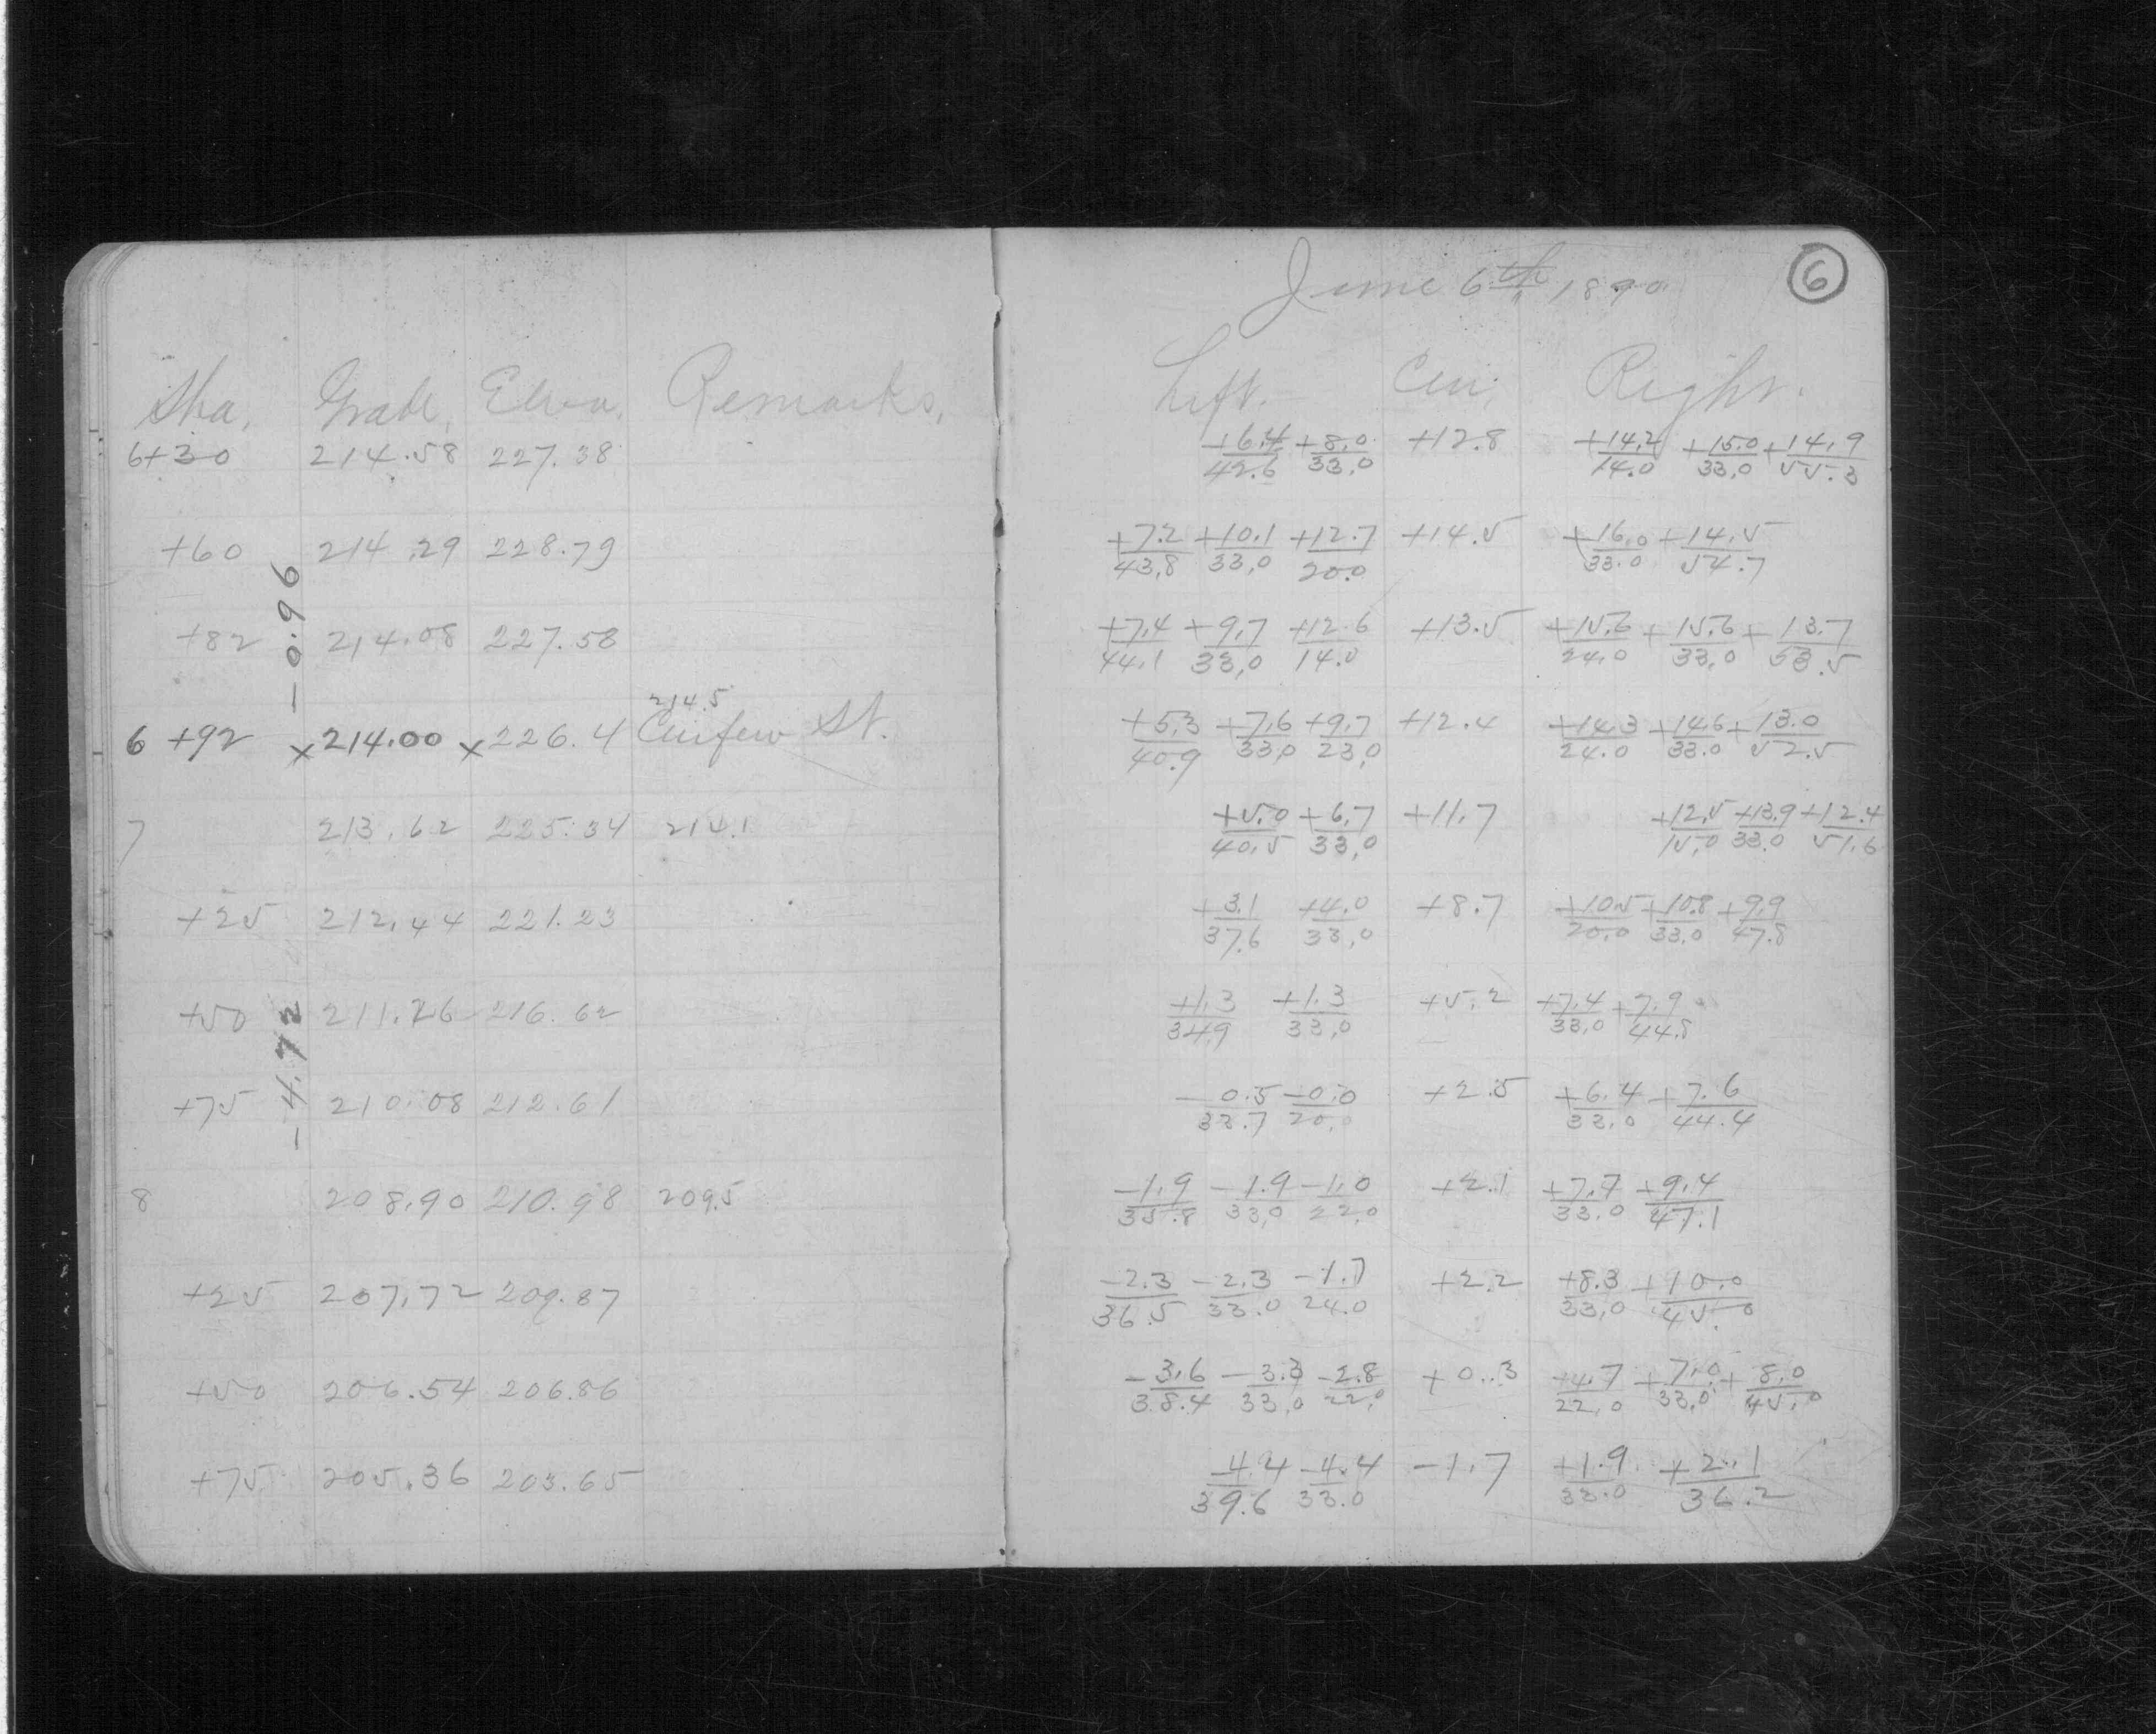 June 6th 1890
6
Sta. Grade, Eleva. Remarks,
Left. Cen. Right.
6+30 214.58 227.38
+6.4/42.6 +8.0/33.0 +12.8 +14.2/14.0 +15.0/33.0 +14.9/55.3
+60 214.29 228.79
+7.2/43.8 +10.1/33.0 +12.7/20.0 +14.5 +16.0/33.0 +14.5/54.7
-0.96
+82 214.08 227.58
+7.4/44.1 +9.7/33.0 +12.6/14.0 +13.5 +15.6/24.0 +15.6/33.0 +13.7/53.5
214.5
6 +92 x214.00 x226.4 Curfew St.
+5.3/40.9 +7.6/33.0 +9.7/23.0 +12.4 +14.3/24.0 +14.6/33.0 +13.0/52.5
7 213.62 225.34 214.1
+5.0/40.5 +6.7/33.0 +11.7 +12.5/15.0 +13.9/33.0 +12.4/51.6
+25 212.44 221.23
+3.1/37.6 +4.0/33.0 +8.7 +10.5/20.0 +10.8/33.0 +9.9/47.8
+50 211.26 216.62
+1.3/34.9 +1.3/33.0 +5.2 +7.4/33.0 +7.9/44.8
-4.72
+75 210.08 212.61
-0.5/33.7 -0.0/20.0 +2.5 +6.4/33.0 +7.6/44.4
8 208.90 210.98 209.5
-1.9/35.8 -1.9/33.0 -1.0/22.0 +2.1 +7.7/33.0 +9.4/47.1
+25 207.72 209.87
-2.3/36.5 -2.3/33.0 -1.7/24.0 +2.2 +8.3/33.0 +10.0/45.0
+50 206.54 206.86
-3.6/38.4 -3.3/33.0 -2.8/22.0 +0.3 +4.7/22.0 +7.0/33.0 +8.0/45.0
+75 205.36 203.65
-4.4/39.6 -4.4/33.0 -1.7 +1.9/33.0 +2.1/36.2